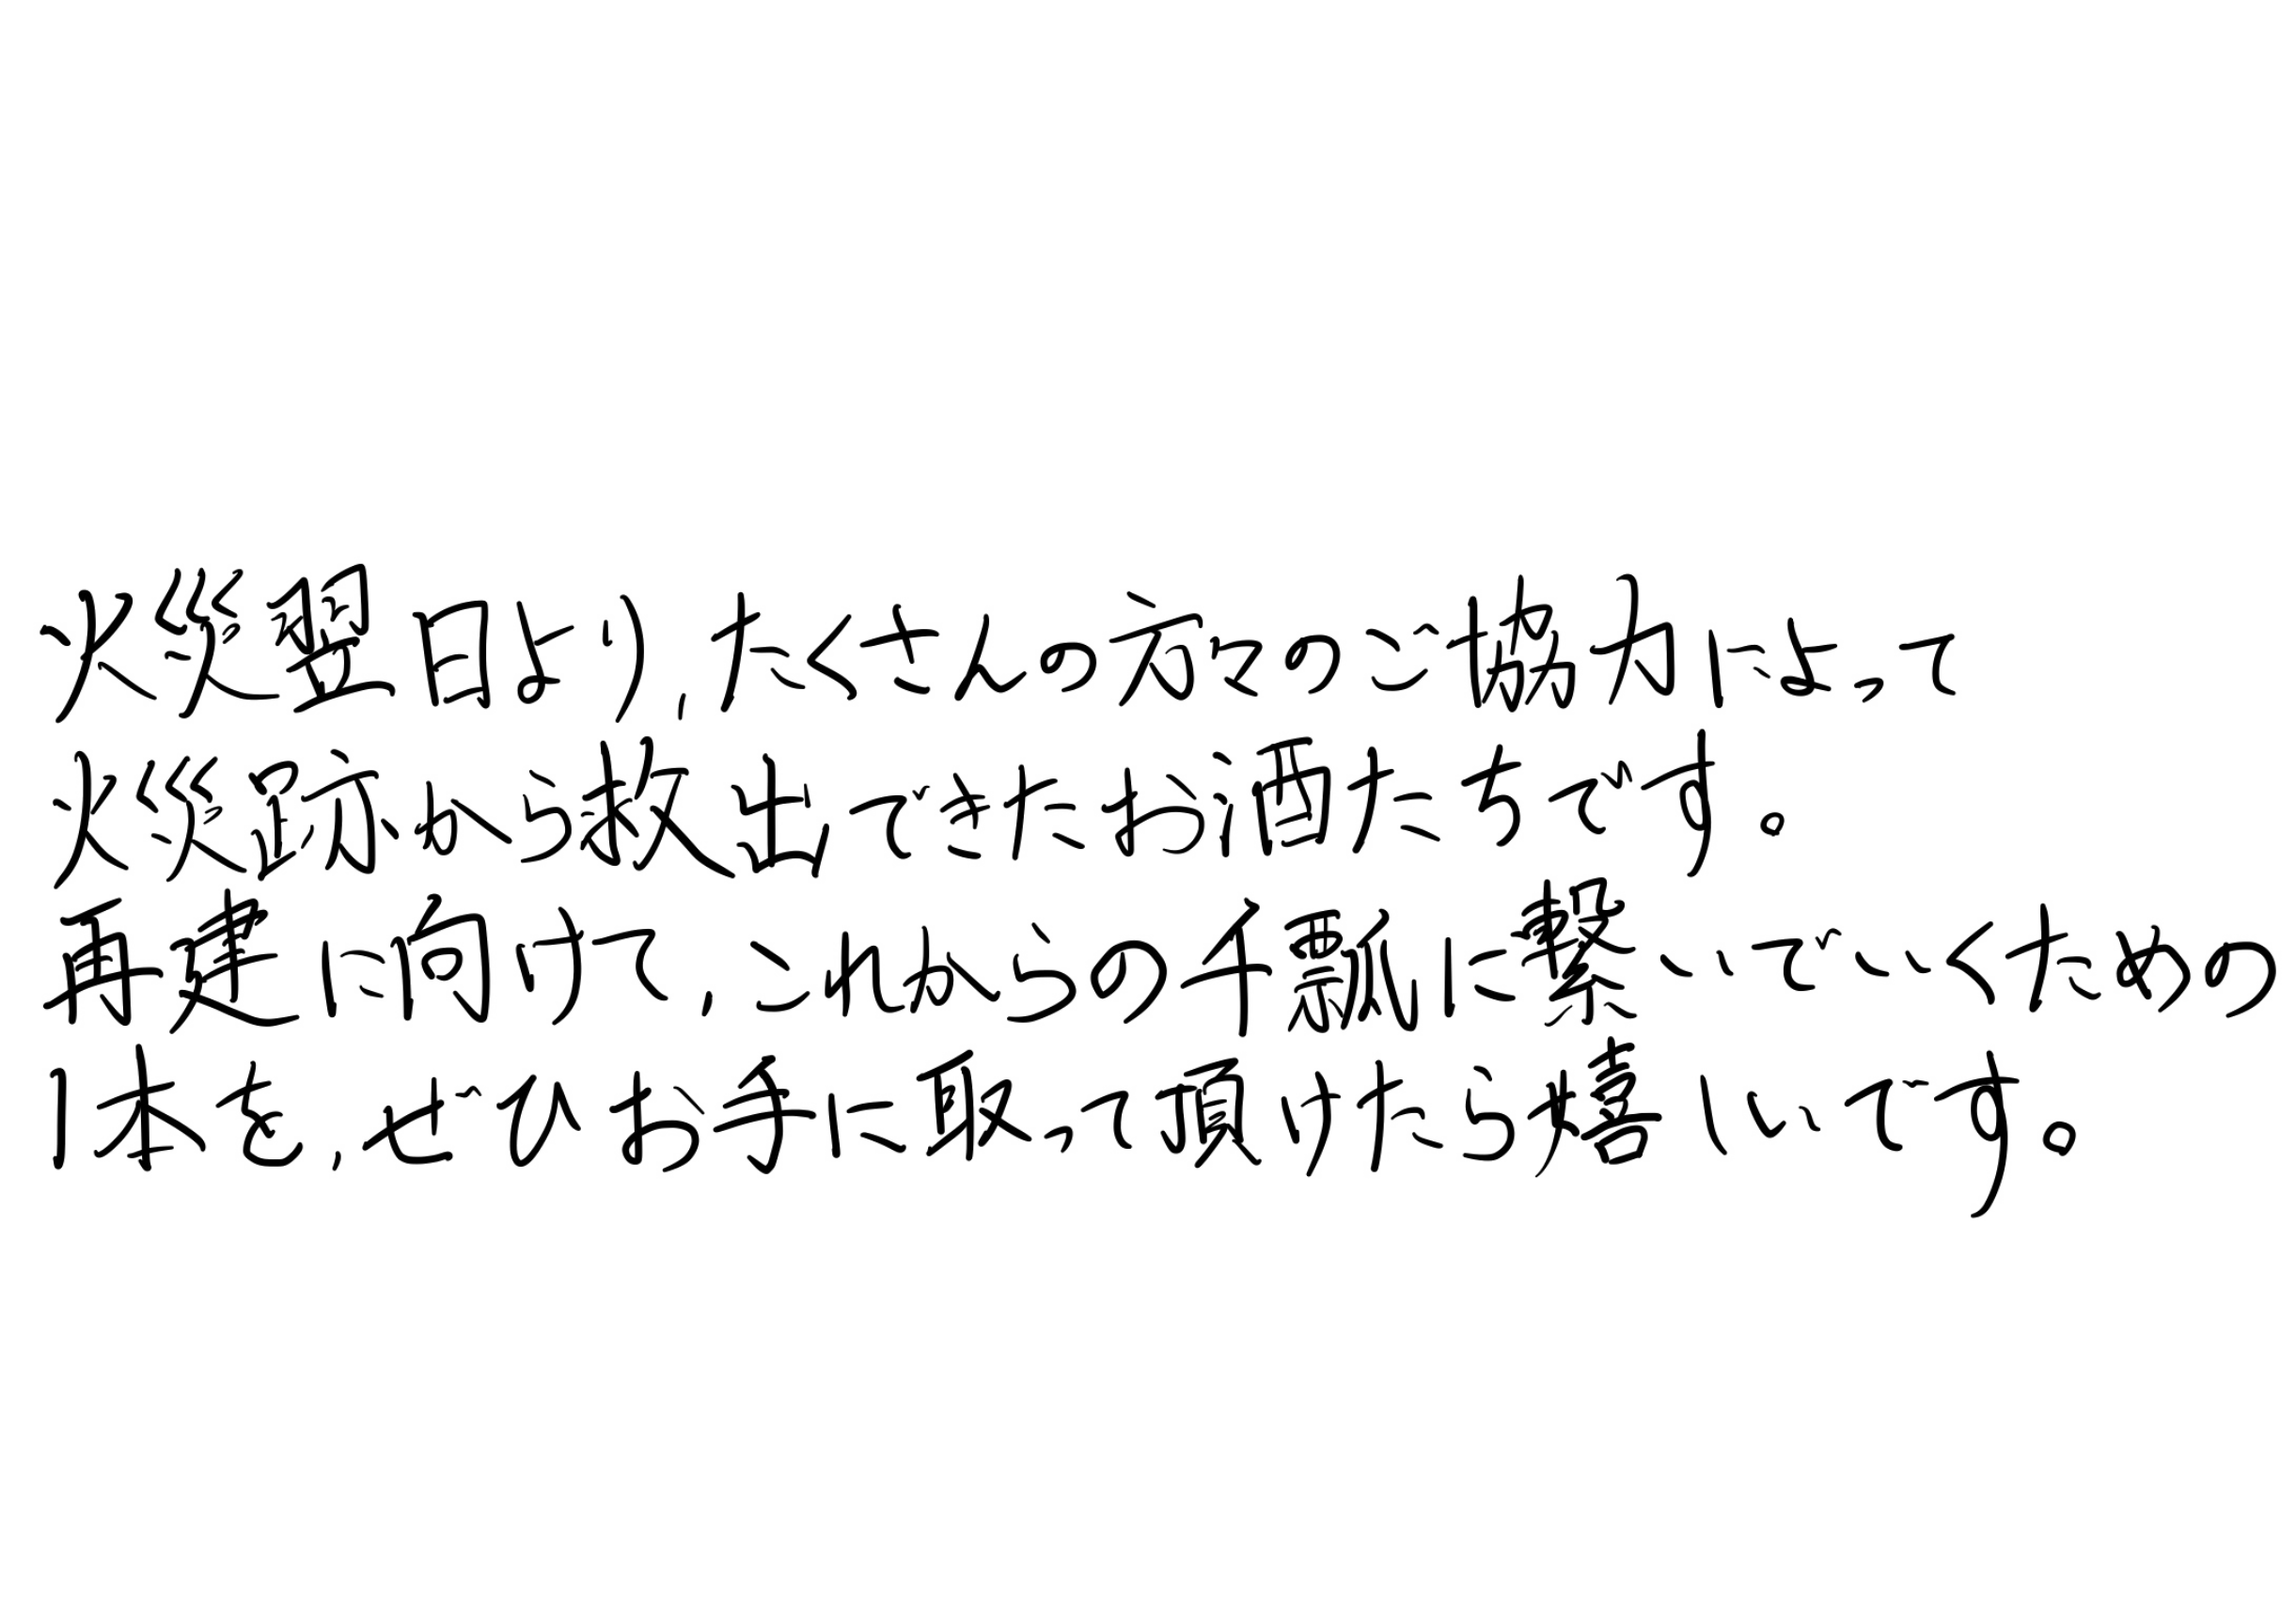 火災翌日より、たくさんの方々のご協力によって
火災跡から救出できたお酒たちです。
再建に向けて、これからの千瓢に繋いでいくための
1本を、ぜひお手に取って頂けたら嬉しいです。